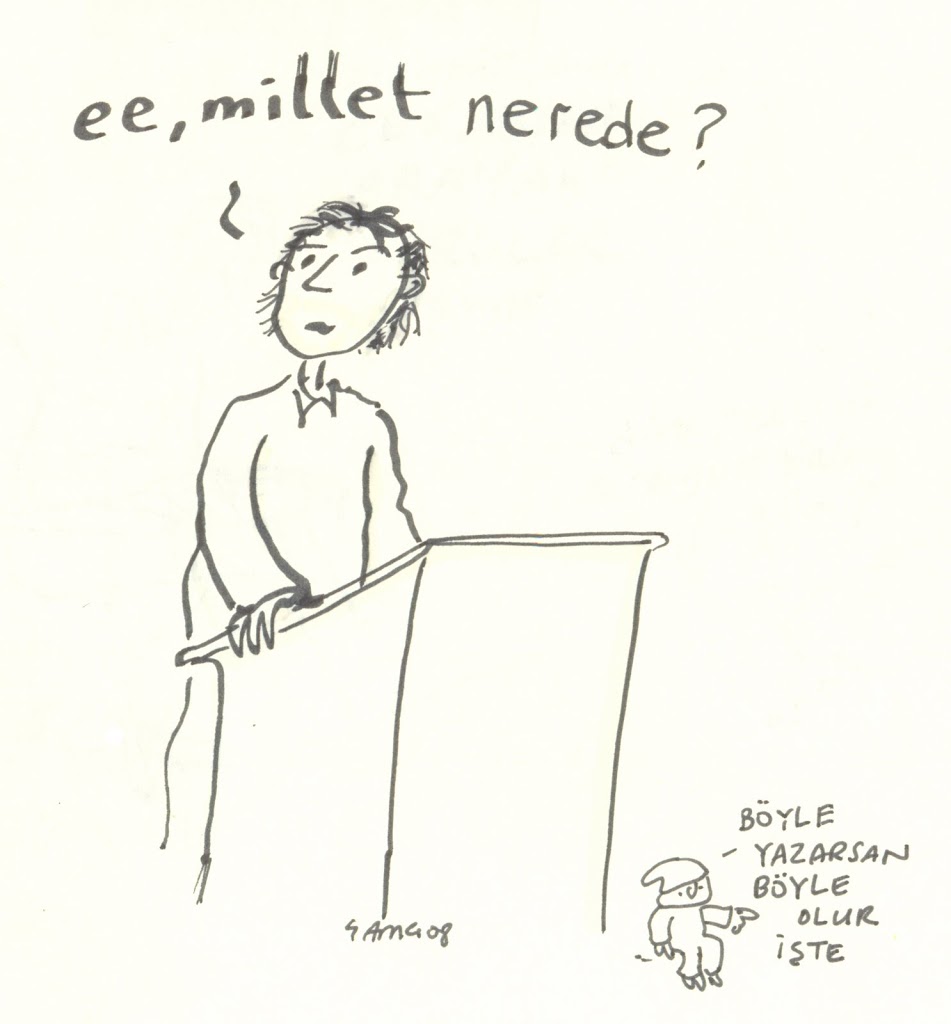 ee, millet nerede?
BÖYLE
YAZARSAN
BÖYLE
OLUR
İŞTE